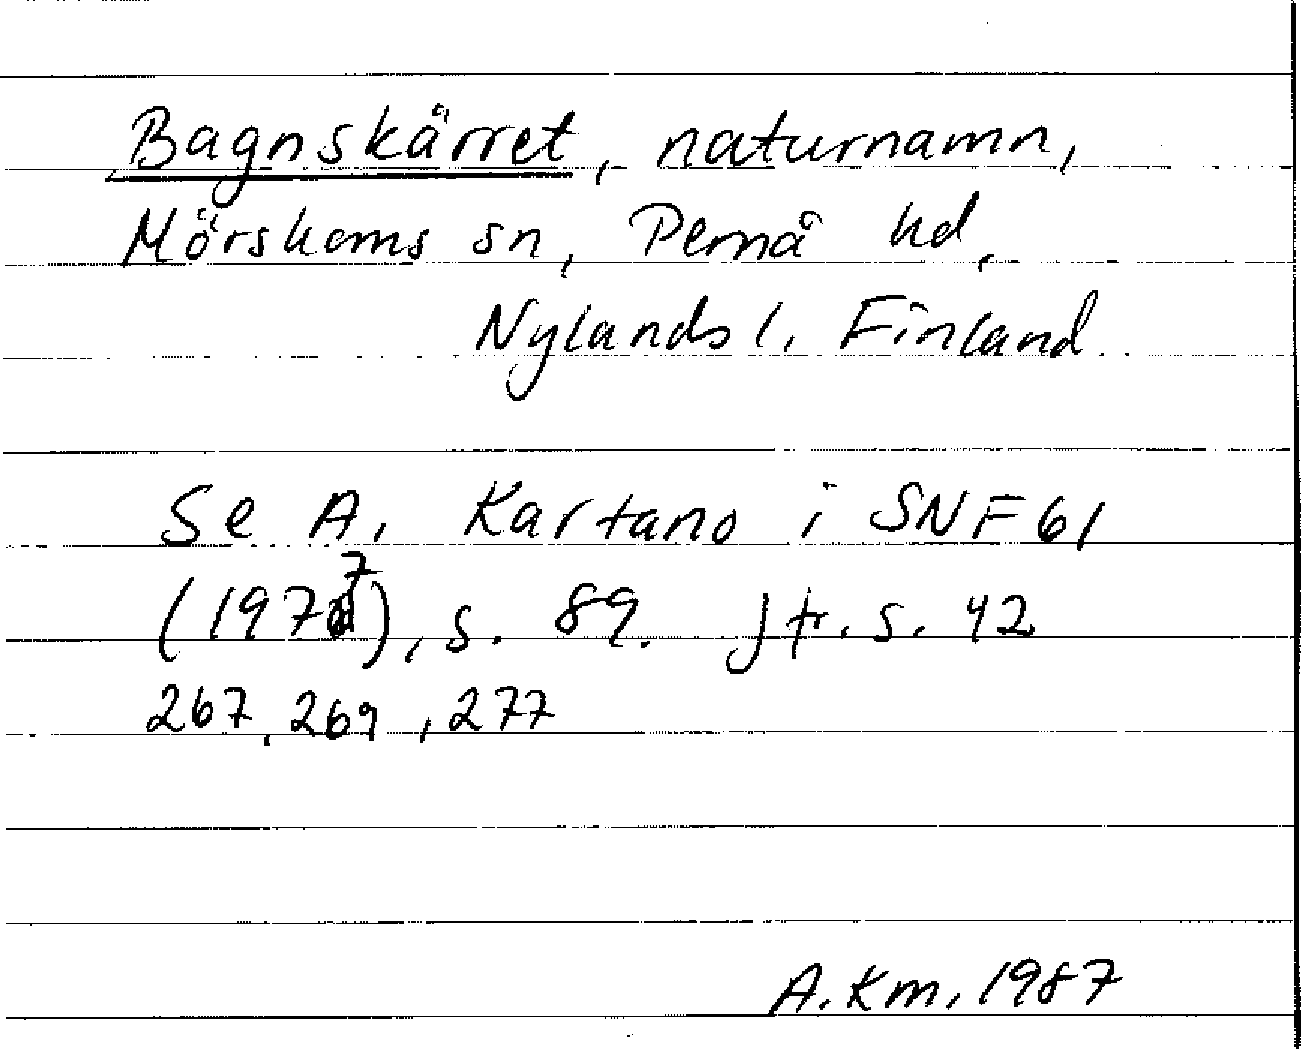 Bagnskärret, naturnamn,
Mörskoms sn, Pernå hd,
Nylands l. Finland.
Se A. Kartano i SNF 61
(1977), s. 89. Jfr. s. 42
267, 269, 277
A. Km. 1987